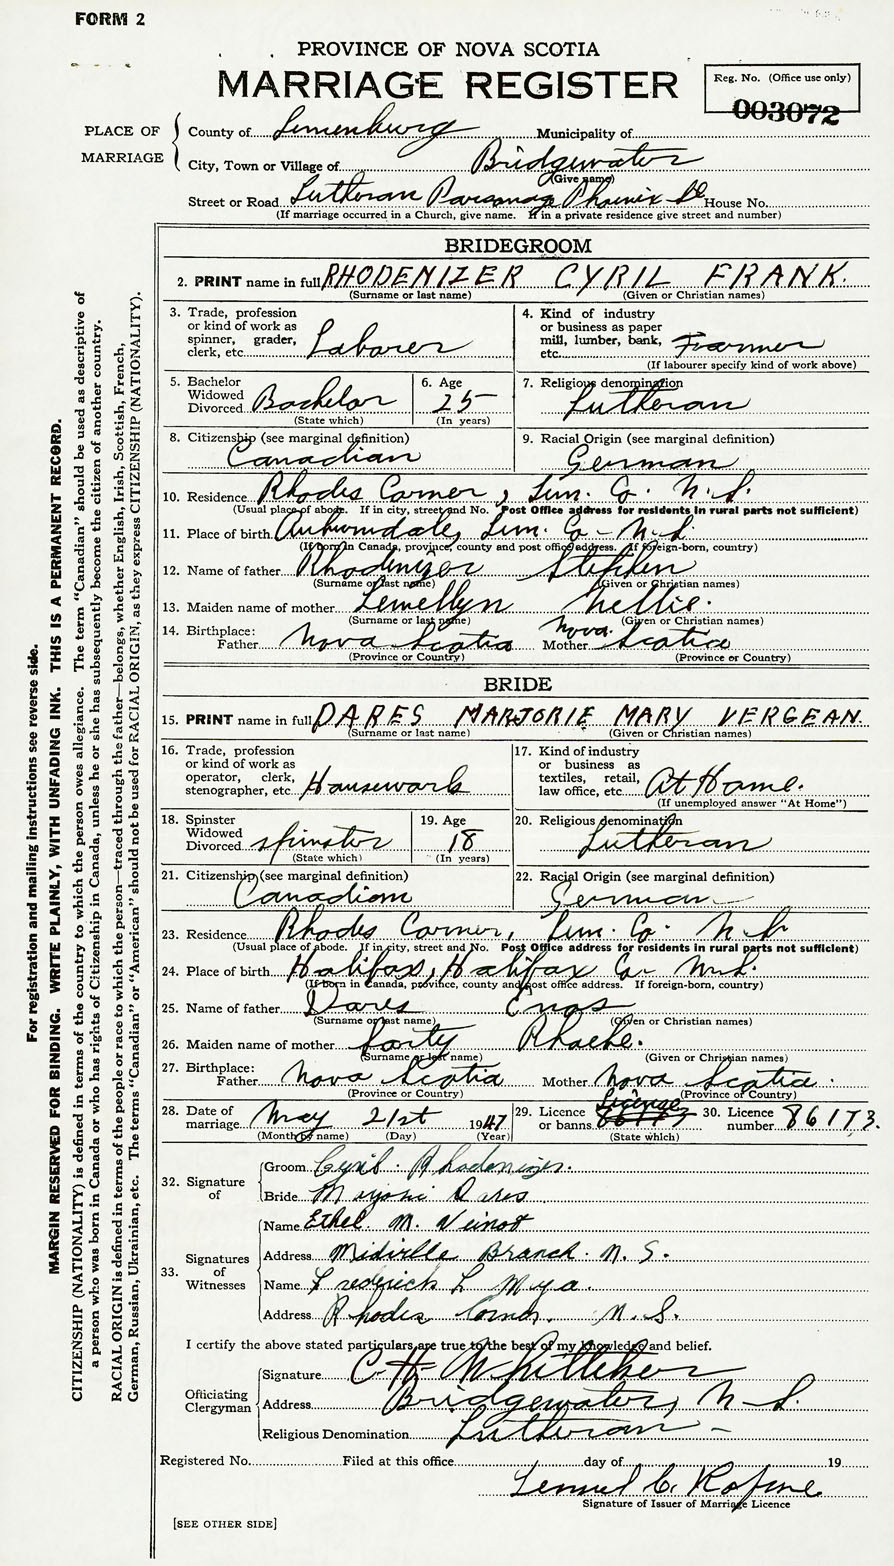 FORM 2
PROVINCE OF NOVA SCOTIA
MARRIAGE REGISTER
Reg. No. (Office use only)
003072
PLACE OF MARRIAGE
County of Lunenburg Municipality of
City, Town or Village of Bridgewater
(Give name)
Street or Road Lutheran Parsonage Phoenix St House No.
(If marriage occurred in a Church, give name. If in a private residence give street and number)
BRIDEGROOM
2. PRINT name in full RHODENIZER CYRIL FRANK.
(Surname or last name) (Given or Christian names)
3. Trade, profession or kind of work as spinner, grader, clerk, etc. Laborer
4. Kind of industry or business as paper mill, lumber, bank, etc. Farmer
(If labourer specify kind of work above)
5. Bachelor Widowed Divorced Bachelor
(State which)
6. Age 25
(In years)
7. Religious denomination
Lutheran
8. Citizenship (see marginal definition)
Canadian
9. Racial Origin (see marginal definition)
German
10. Residence Rhodes Corner, Lun. Co. N.S.
(Usual place of abode. If in city, street and No. Post Office address for residents in rural parts not sufficient)
11. Place of birth Auburndale, Lun. Co. N.S.
(If born in Canada, province, county and post office address. If foreign-born, country)
12. Name of father Rhodenizer Stephen
(Surname or last name) (Given or Christian names)
13. Maiden name of mother Lewellyn Nellie.
(Surname or last name) (Given or Christian names)
14. Birthplace: Father Nova Scotia Mother Nova Scotia
(Province or Country) (Province or Country)
BRIDE
15. PRINT name in full DARES MARJORIE MARY VERGEAN.
(Surname or last name) (Given or Christian names)
16. Trade, profession or kind of work as operator, clerk, stenographer, etc. Housework
17. Kind of industry or business as textiles, retail, law office, etc. At Home.
(If unemployed answer "At Home")
18. Spinster Widowed Divorced spinster
(State which)
19. Age 18
(In years)
20. Religious denomination
Lutheran
21. Citizenship (see marginal definition)
Canadian
22. Racial Origin (see marginal definition)
German
23. Residence Rhodes Corner, Lun. Co. N.S.
(Usual place of abode. If in city, street and No. Post Office address for residents in rural parts not sufficient)
24. Place of birth Halifax, Halifax Co. N.S.
(If born in Canada, province, county and post office address. If foreign-born, country)
25. Name of father Dares Enos
(Surname or last name) (Given or Christian names)
26. Maiden name of mother
(Surname or last name) (Given or Christian names)
27. Birthplace: Father Nova Scotia Mother Nova Scotia.
(Province or Country) (Province or Country)
28. Date of marriage May 21st 1947
(Month by name) (Day) (Year)
29. Licence or banns License
(State which)
30. Licence number 86173.
32. Signature of
Groom Cyril Rhodenizer.
Bride Marjorie Dares
33. Signatures of Witnesses
Name Ethel M. Veinot
Address Midville Branch. N.S.
Name Frederick L
Address Rhodes Corner. N.S.
I certify the above stated particulars are true to the best of my knowledge and belief.
Officiating Clergyman
Signature C. H. Whitteker
Address Bridgewater, N.S.
Religious Denomination Lutheran
Registered No. Filed at this office day of 19
Lemuel C.
Signature of Issuer of Marriage Licence
[SEE OTHER SIDE]
For registration and mailing instructions see reverse side.
MARGIN RESERVED FOR BINDING. WRITE PLAINLY, WITH UNFADING INK. THIS IS A PERMANENT RECORD.
CITIZENSHIP (NATIONALITY) is defined in terms of the country to which the person owes allegiance. The term "Canadian" should be used as descriptive of
a person who was born in Canada or who has rights of Citizenship in Canada, unless he or she has subsequently become the citizen of another country.
RACIAL ORIGIN is defined in terms of the people or race to which the person—traced through the father—belongs, whether English, Irish, Scottish, French,
German, Russian, Ukrainian, etc. The terms "Canadian" or "American" should not be used for RACIAL ORIGIN, as they express CITIZENSHIP (NATIONALITY).